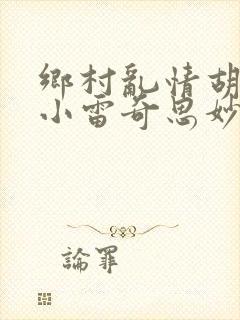 鄉村亂情胡
小雷奇思妙
論罪